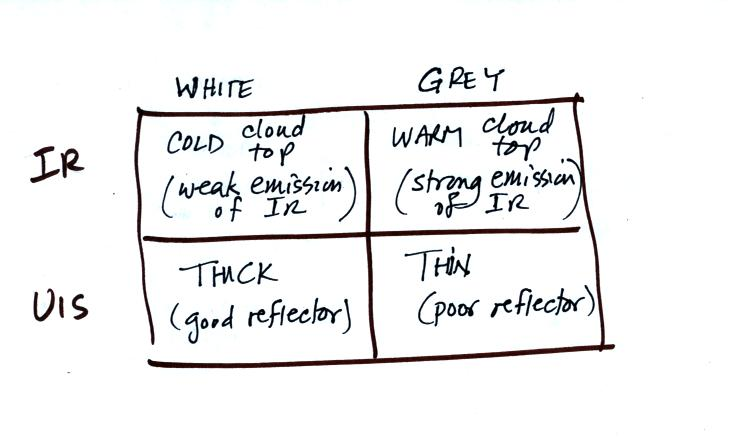 WHITE GREY
IR
COLD cloud top
(weak emission of IR)
WARM cloud top
(strong emission of IR)
VIS
THICK
(good reflector)
THIN
(poor reflector)